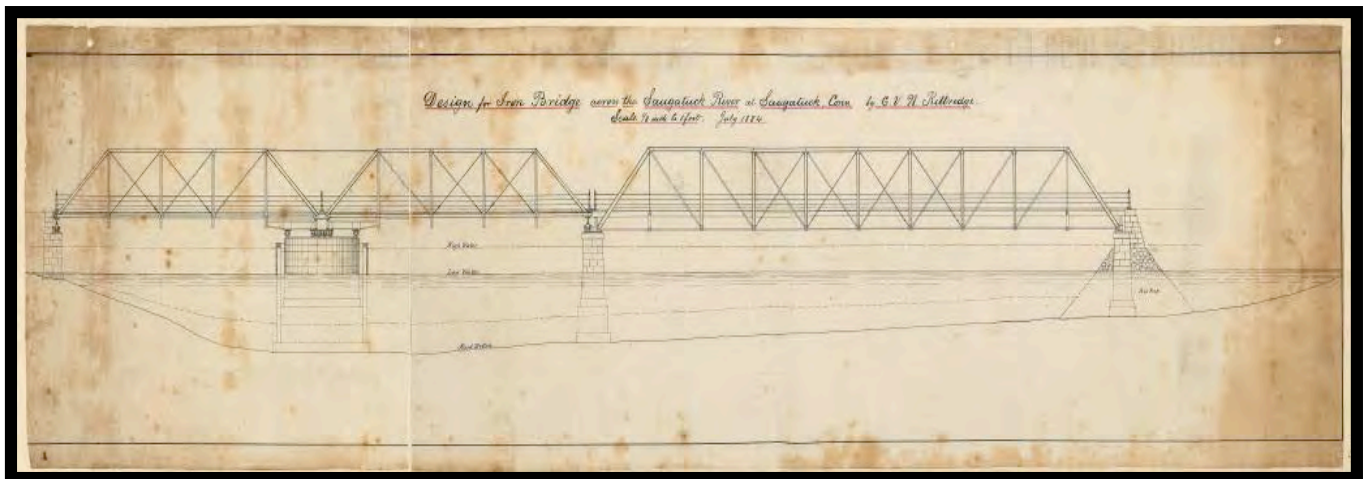 Design for Iron Bridge across the Saugatuck River at Saugatuck, Conn. by C. V. N. Kittredge.
Scale 1/8 inch to 1 foot. July 1884
High Water
Low Water
Rip Rap
Hard Bottom